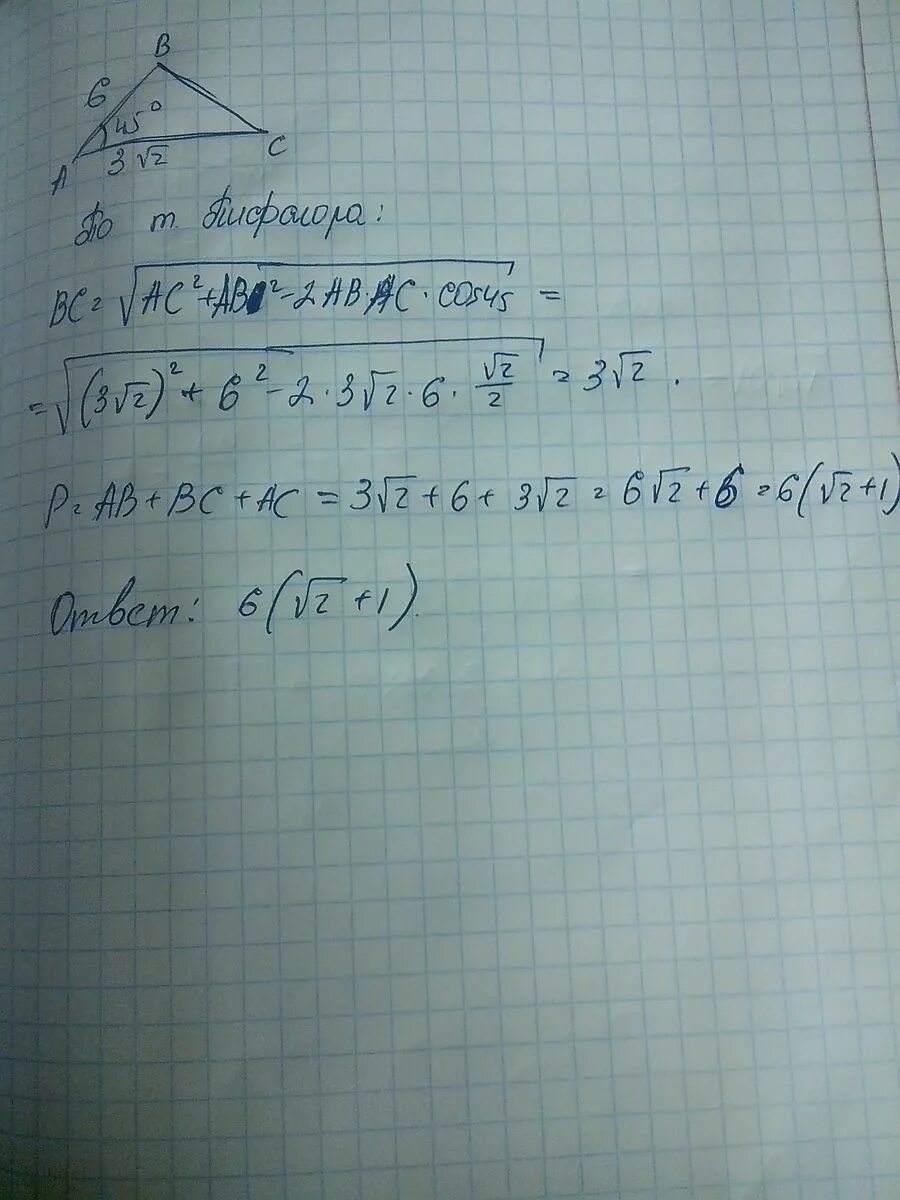 B
6
45°
A
3√2
C
По т. Пифагора:
BC = √(AC² + AB² - 2AB·AC · cos45 =
= √((3√2)² + 6² - 2 · 3√2 · 6 · √2/2) = 3√2.
P = AB + BC + AC = 3√2 + 6 + 3√2 = 6√2 + 6 = 6(√2+1)
Ответ: 6(√2 + 1).